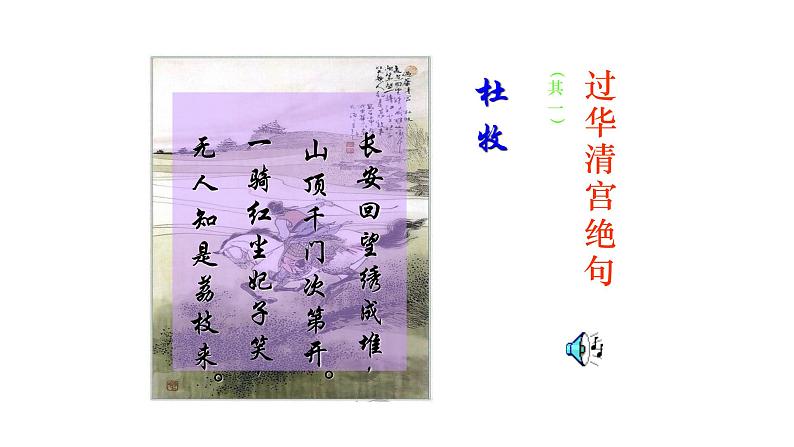 过华清宫绝句
（其一）
杜牧
长安回望绣成堆，
山顶千门次第开。
一骑红尘妃子笑，
无人知是荔枝来。